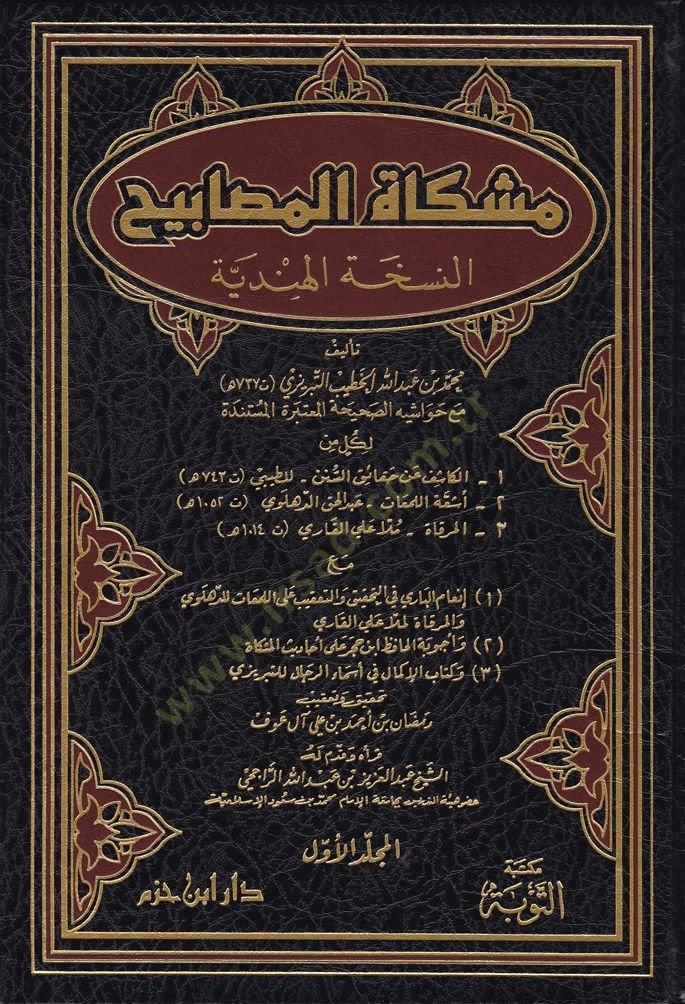 مشكاة المصابيح
النسخة الهندية
تأليف
محمد بن عبد الله الخطيب التبريزي (ت ٧٣٧ هـ)
مع حواشيه الصحيحة المعتبرة المستندة
لكل من
١ - الكاشف عن حقائق السنن - للطيبي (ت ٧٤٣ هـ)
٢ - أشعة اللمعات - عبد الحق الدهلوي (ت ١٠٥٢ هـ)
٣ - المرقاة - ملا علي القاري (ت ١٠١٤ هـ)
مع
(١) إنعام الباري في التحقيق والتعقيب على اللمعات للدهلوي
والمرقاة لملا علي القاري
(٢) وأجوبة الحافظ ابن حجر على أحاديث المشكاة
(٣) وكتاب الإكمال في أسماء الرجال للتبريزي
تحقيق وتعقيب
رمضان بن أحمد بن علي آل عوف
قرأه وقدم له
الشيخ عبد العزيز بن عبد الله الراجحي
عضو هيئة التدريس بجامعة الإمام محمد بن سعود الإسلامية
المجلد الأول
مكتبة
التوبة
دار ابن حزم